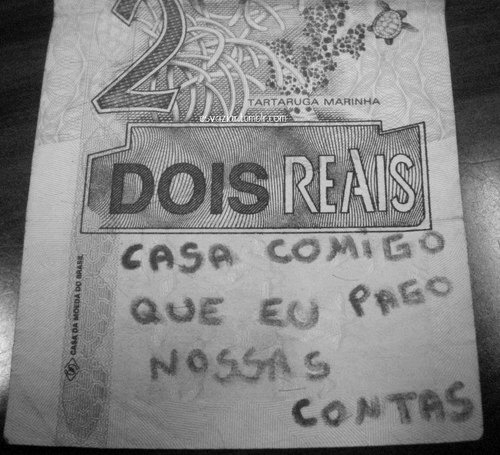 2
TARTARUGA MARINHA
DOIS REAIS
CASA COMIGO
QUE EU PAGO
NOSSAS
CONTAS
CASA DA MOEDA DO BRASIL